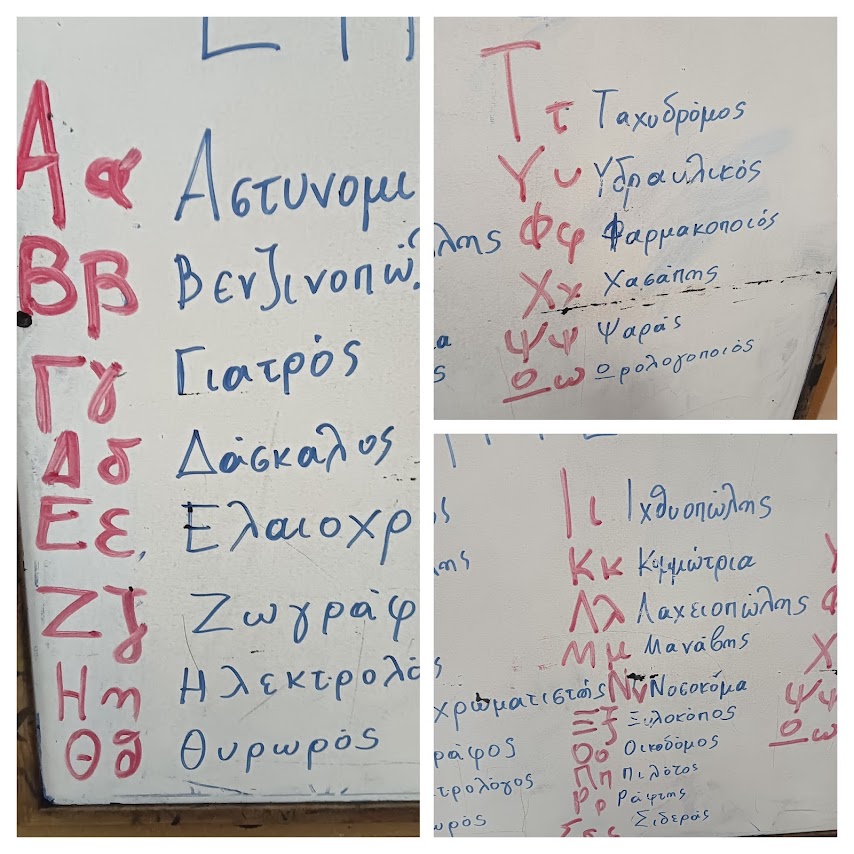 Α α Αστυνομι
Β β Βενζινοπώ
Γ γ Γιατρός
Δ δ Δάσκαλος
Ε ε, Ελαιοχρ
Ζ ζ Ζωγράφ
Η η Ηλεκτρολό
Θ θ Θυρωρός
Τ τ Ταχυδρόμος
Υ υ Υδραυλικός
λης Φ φ Φαρμακοποιός
Χ χ Χασάπης
α Ψ ψ Ψαράς
ς Ο ω Ορολογοποιός
ς Ι ι Ιχθυοπώλης
ης Κ κ Κομμώτρια
Λ λ Λαχειοπώλης Φ
Μ μ Μανάβης Χ
χρωματιστής Ν ν Νοσοκόμα Ψ ψ
ράφος Ξ ξ Ξυλοκόπος Ο ω
τρολόγος Ο ο Οικοδόμος
Π π Πιλότος
Ρ ρ Ράφτης
ωρός Σ σ ς Σιδεράς